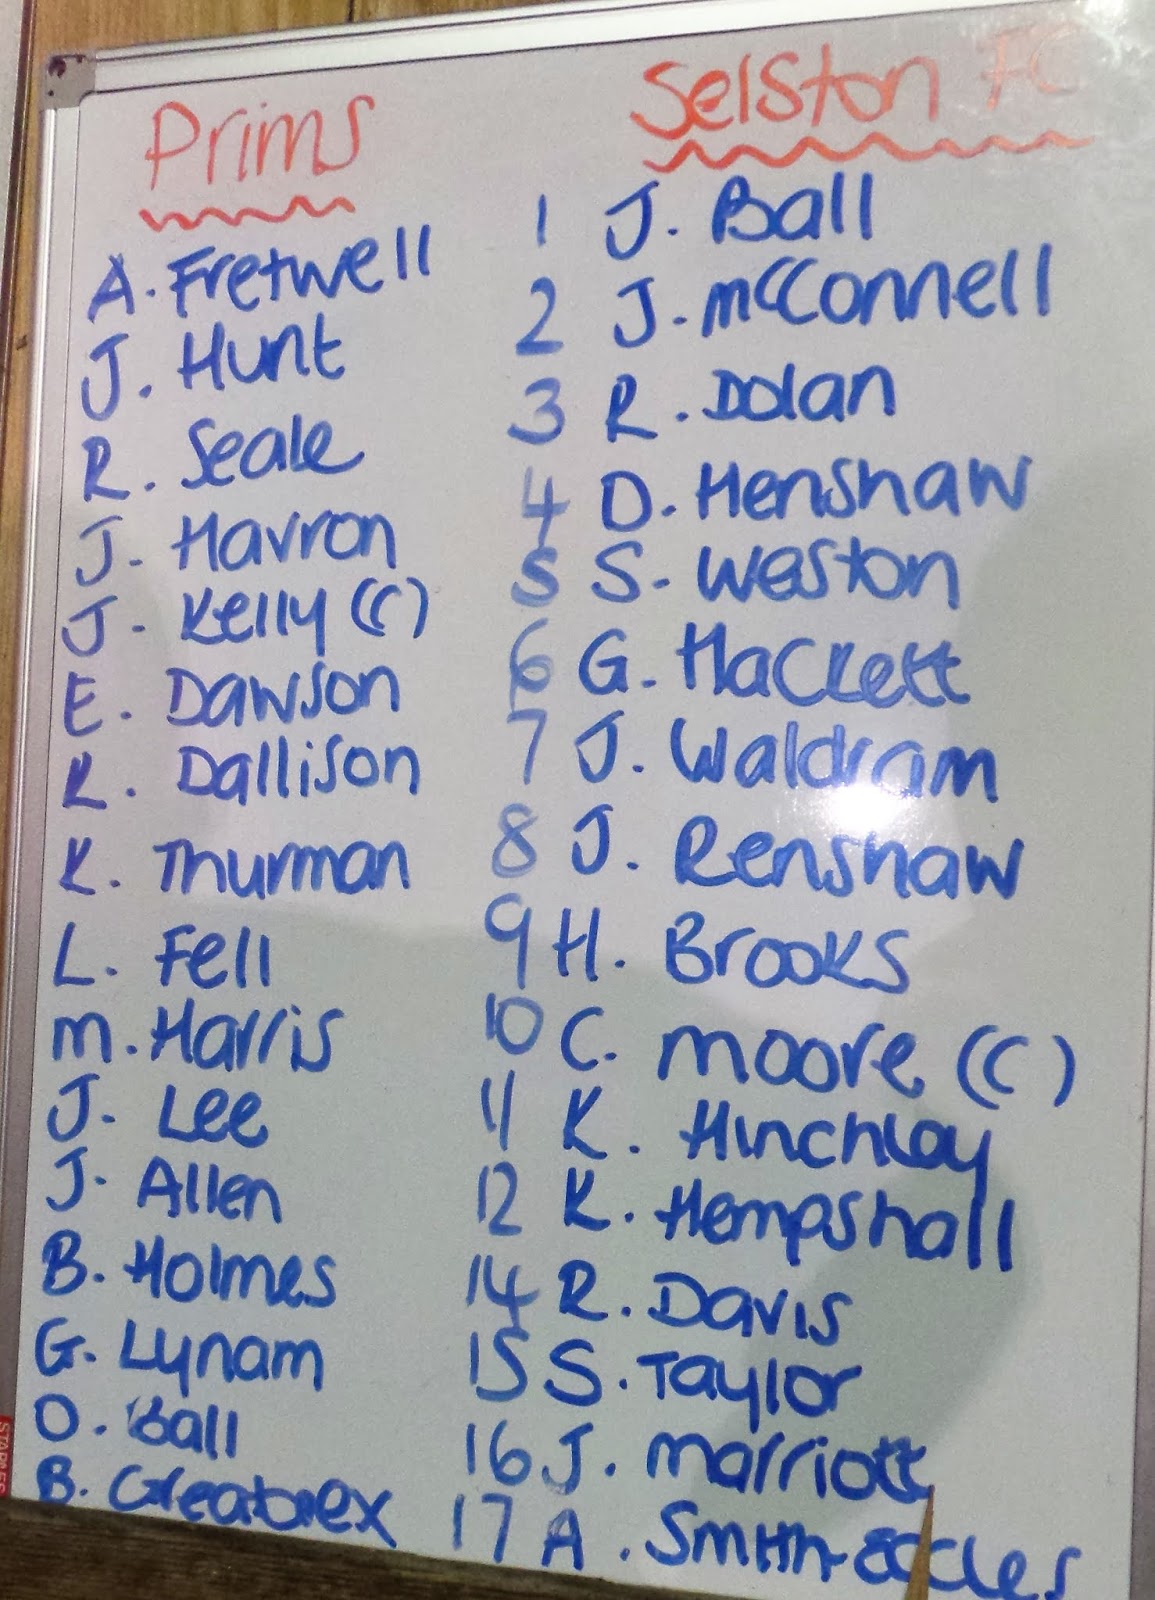 Prims Selston FC
A. Fretwell 1 J. Ball
J. Hunt 2 J. McConnell
R. Seale 3 R. Dolan
J. Havron 4 D. Henshaw
J. Kelly (C) 5 S. Weston
E. Dawson 6 G. Hackett
K. Dallison 7 J. Waldram
K. Thurman 8 J. Renshaw
L. Fell 9 H. Brooks
M. Harris 10 C. Moore (C)
J. Lee 11 K. Hinchley
J. Allen 12 K. Hempshall
B. Holmes 14 R. Davis
G. Lynam 15 S. Taylor
O. Ball 16 J. Marriott
B. Greatorex 17 A. Smith-Eccles
STAPLES